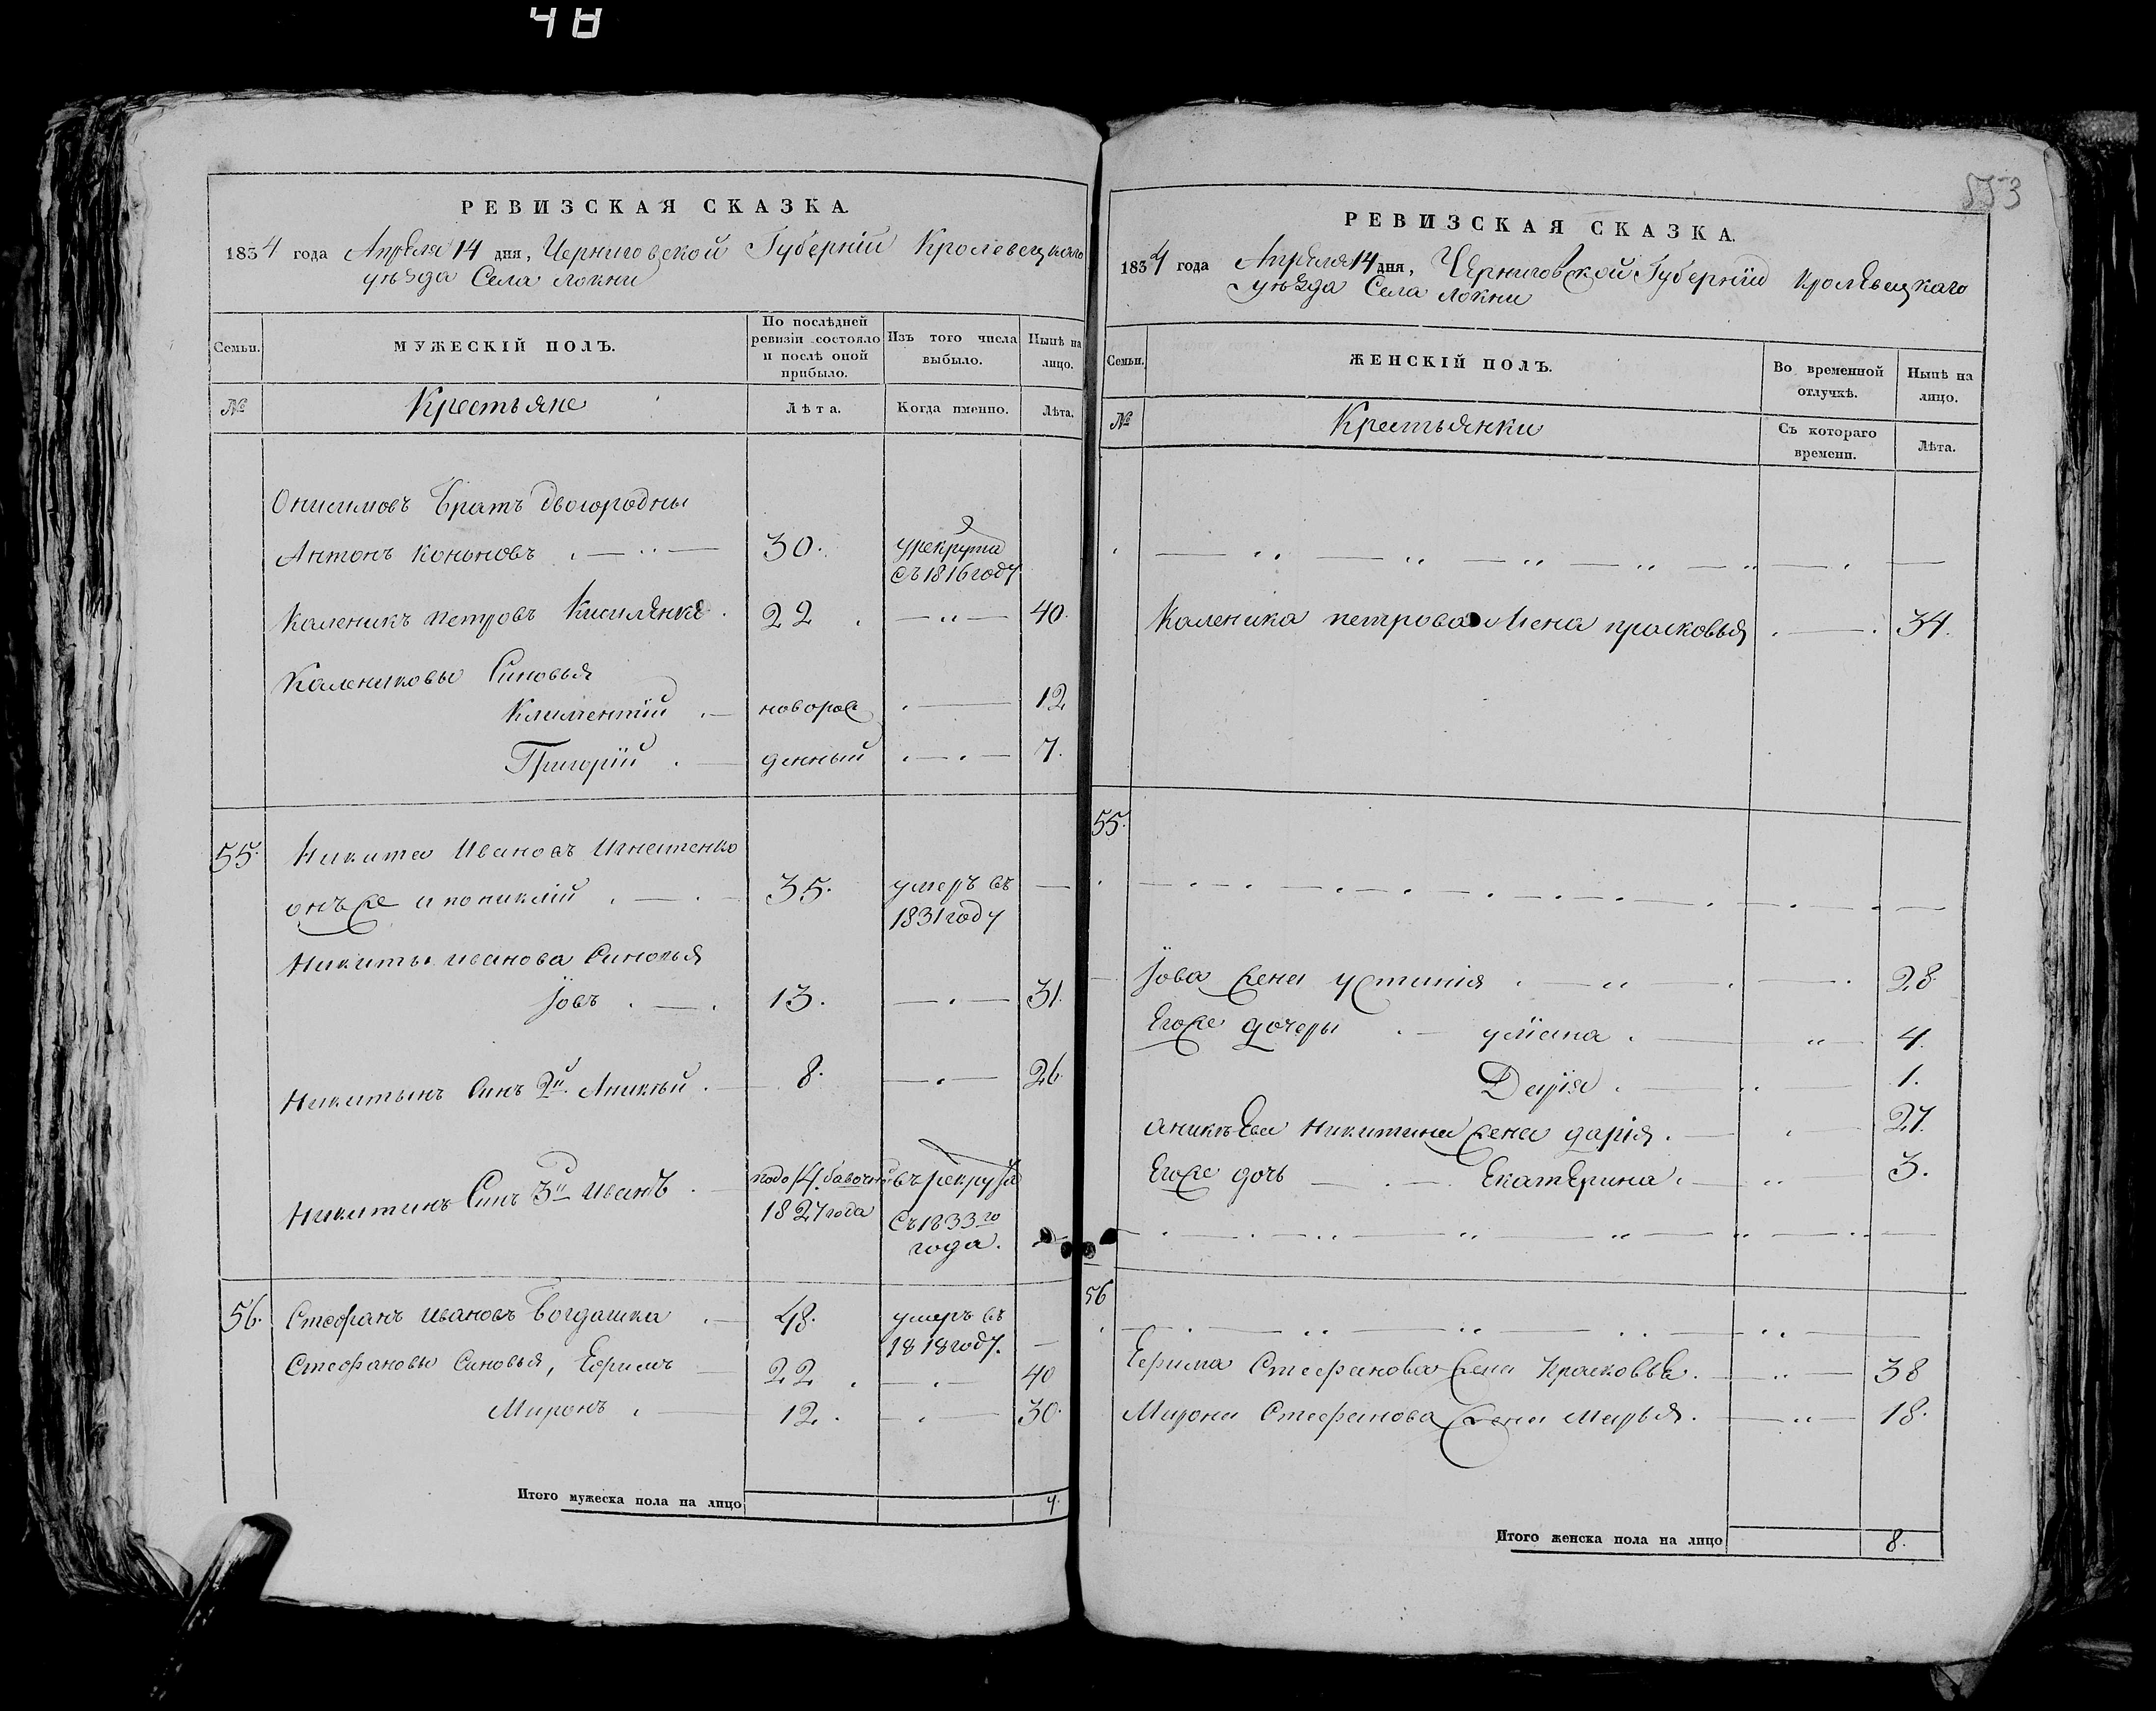 48
РЕВИЗСКАЯ СКАЗКА.
1834 года Апреля 14 дня, Черниговской Губерніи Кролевецкаго
уѣзда Села Локни
Семьи. МУЖЕСКІЙ ПОЛЪ. По послѣдней ревизіи состояло и послѣ оной прибыло. Изъ того числа выбыло. Нынѣ на лицо.
№ Крестьяне Лѣта. Когда именно. Лѣта.
Онисимовъ братъ двоюродны
Антонъ Кононовъ 30. урекрута
съ 1816 году
Каленикъ петровъ 22 40.
Калениковы Синовья
Климентий новорож 12
Григорій денный 7.
55. Никита Ивановъ Игнатенко
онъже 35. умеръ въ
1831 году
Никиты иванова Синовья
Іовъ 13. 31.
Никитынъ Синъ 2й Аникѣй 8. 26.
Никитинъ Синъ 3й Иванъ въ рекрута
1827 года съ 1833го
года.
56. Стефанъ Ивановъ Богдашка 48. умеръ въ
1818 году.
Стефановы Синовья, Ефимъ 22 40
Миронъ 12. 30.
Итого мужеска пола на лицо 7.
553
РЕВИЗСКАЯ СКАЗКА.
1834 года Апреля 14 дня, Черниговской Губерніи Кролевецкаго
уѣзда Села Локни
Семьи. ЖЕНСКІЙ ПОЛЪ. Во временной отлучкѣ. Нынѣ на лицо.
№ Крестьянки Съ котораго времени. Лѣта.
Каленика петрова Жена прасковья 34.
55.
Іова жена Устинія 28.
Егоже дочеры уліана 4.
Дарія 1.
аникѣева Никитина жена дарія. 27.
Егоже дочь Екатерина. 3.
56
Ефима Стефанова жена Прасковья. 38
Мирона Стефанова жена Марья. 18.
Итого женска пола на лицо 8.